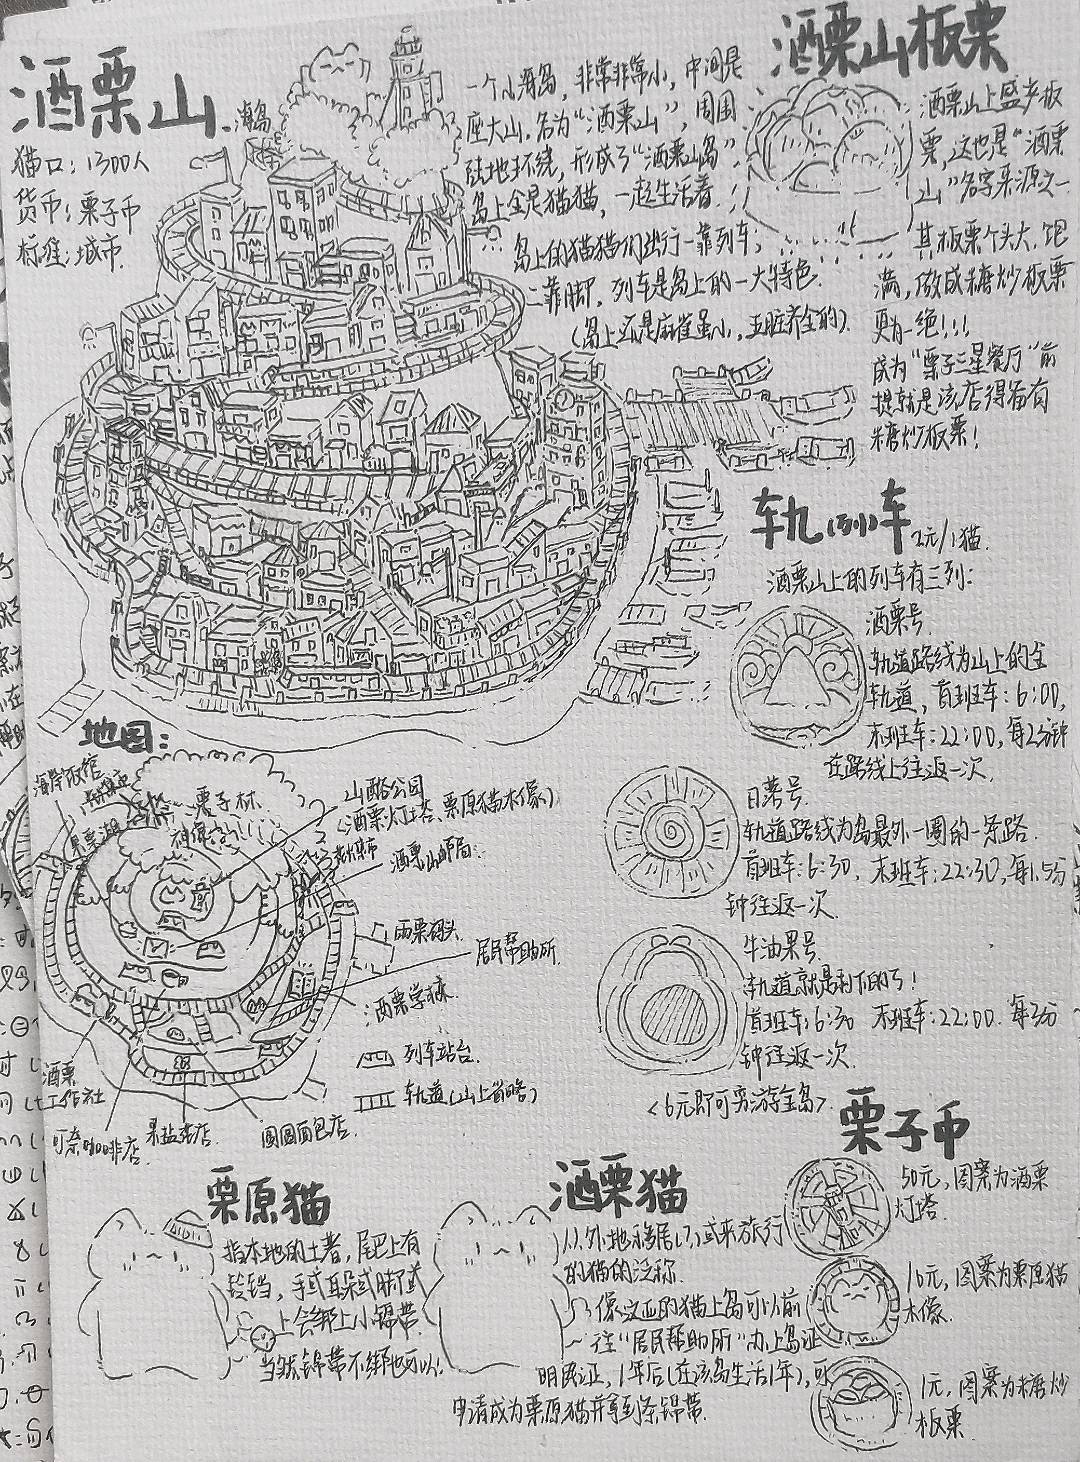 酒栗山
海岛
猫口：1300人
货币：栗子币
标准：城市
一个小海岛，非常非常小，中间是
座大山，名为“酒栗山”，周围
陆地环绕，形成了“酒栗山岛”
岛上全是猫猫，一起生活着．
岛上的猫猫们出行一靠列车，
二靠脚，列车是岛上的一大特色．
（岛上还是麻雀虽小，五脏齐全的）．
酒栗山板栗
酒栗山上盛产板
栗，这也是“酒栗
山”名字来源之一
其板栗个头大，饱
满，做成糖炒板栗
更为一绝！！！
成为“栗子三星餐厅”前
提就是该店得猫有
糖炒板栗！
轨列车 2元/1猫．
酒栗山上的列车有三列：
酒栗号
轨道路线为山上的全
轨道，首班车：6:00，
末班车：22:00，每2分钟
在路线上往返一次．
日落号
轨道路线为岛最外一圈的一条路．
首班车：6:30，末班车：22:30，每1.5分
钟往返一次．
牛油果号
轨道就是剩下的了！
首班车：6:30 末班车：22:00 每3分
钟往返一次．
<6元即可穷游全岛>．
地图：
海岸饭馆
栗子林
山酪公园
（酒栗灯塔、栗原猫木像）
酒栗山邮局：
雨栗码头
居民帮助所
酒栗学麻
列车站台
轨道（山上省略）
酒栗
工作社
可奈咖啡店
果盐粥店
圆圆面包店．
栗原猫
指本地的土著，尾巴上有
铃铛，手或耳朵或脚或
上会绑上小锦带
当然锦带不绑也可以！
酒栗猫
从外地移居（？）或来旅行
的猫的泛称．
像这些的猫上岛可以前
往“居民帮助所”办上岛证
明民证，1年后（在该岛生活1年），可
申请成为栗原猫并拿到条锦带．
栗子币
50元，图案为酒栗
灯塔．
10元，图案为栗原猫
木像．
1元，图案为糖炒
板栗